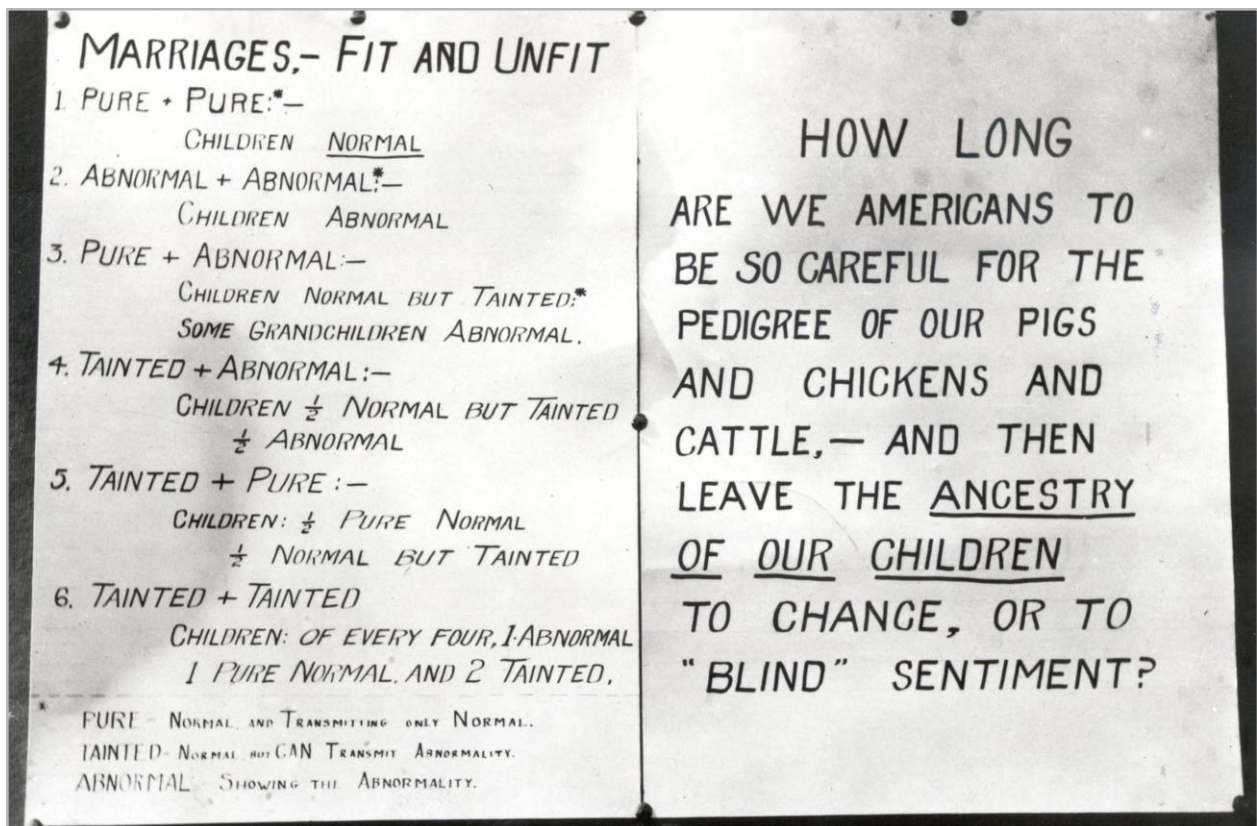 MARRIAGES,- FIT AND UNFIT
1. PURE + PURE:*-
CHILDREN NORMAL
2. ABNORMAL + ABNORMAL:*-
CHILDREN ABNORMAL
3. PURE + ABNORMAL:-
CHILDREN NORMAL BUT TAINTED:*
SOME GRANDCHILDREN ABNORMAL.
4. TAINTED + ABNORMAL:-
CHILDREN ½ NORMAL BUT TAINTED
½ ABNORMAL
5. TAINTED + PURE:-
CHILDREN: ½ PURE NORMAL
½ NORMAL BUT TAINTED
6. TAINTED + TAINTED
CHILDREN: OF EVERY FOUR, 1 ABNORMAL
1 PURE NORMAL. AND 2 TAINTED.
*
PURE - NORMAL AND TRANSMITTING ONLY NORMAL.
TAINTED - NORMAL BUT CAN TRANSMIT ABNORMALITY.
ABNORMAL - SHOWING THE ABNORMALITY.
HOW LONG
ARE WE AMERICANS TO
BE SO CAREFUL FOR THE
PEDIGREE OF OUR PIGS
AND CHICKENS AND
CATTLE,- AND THEN
LEAVE THE ANCESTRY
OF OUR CHILDREN
TO CHANCE, OR TO
"BLIND" SENTIMENT?